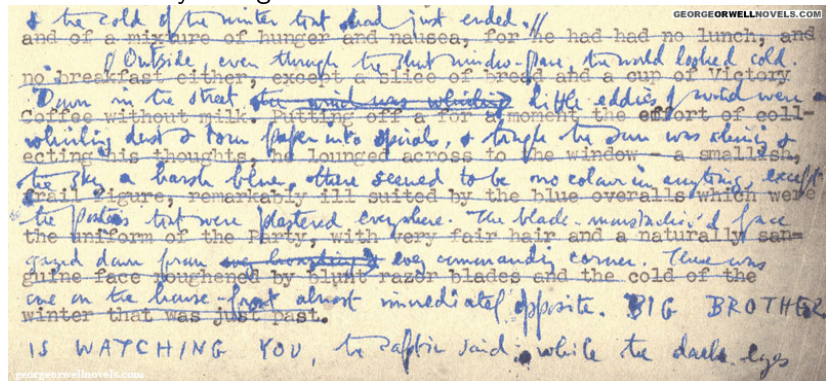 GEORGEORWELLNOVELS.COM
& the cold of the winter that had just ended. //
and of a mixture of hunger and nausea, for he had had no lunch, and
Outside, even through the shut window-pane, the world looked cold.
no breakfast either, except a slice of bread and a cup of Victory
Down in the street the wind was whirling little eddies of wind were
Coffee without milk. Putting off a for a moment the effort of coll-
whirling dust & torn paper into spirals, & though the sun was shining &
ecting his thoughts, he lounged across to the window - a smallish,
the sky a harsh blue, there seemed to be no colour in anything, except
frail figure, remarkably ill suited by the blue overalls which were
the posters that were plastered everywhere. The black-mustachio'd face
the uniform of the Party, with very fair hair and a naturally san-
gazed down from every commanding corner. There was
guine face roughened by blunt razor blades and the cold of the
one on the house-front almost immediately opposite. BIG BROTHER
winter that was just past.
IS WATCHING YOU, the caption said, while the dark eyes
georgeorwellnovels.com